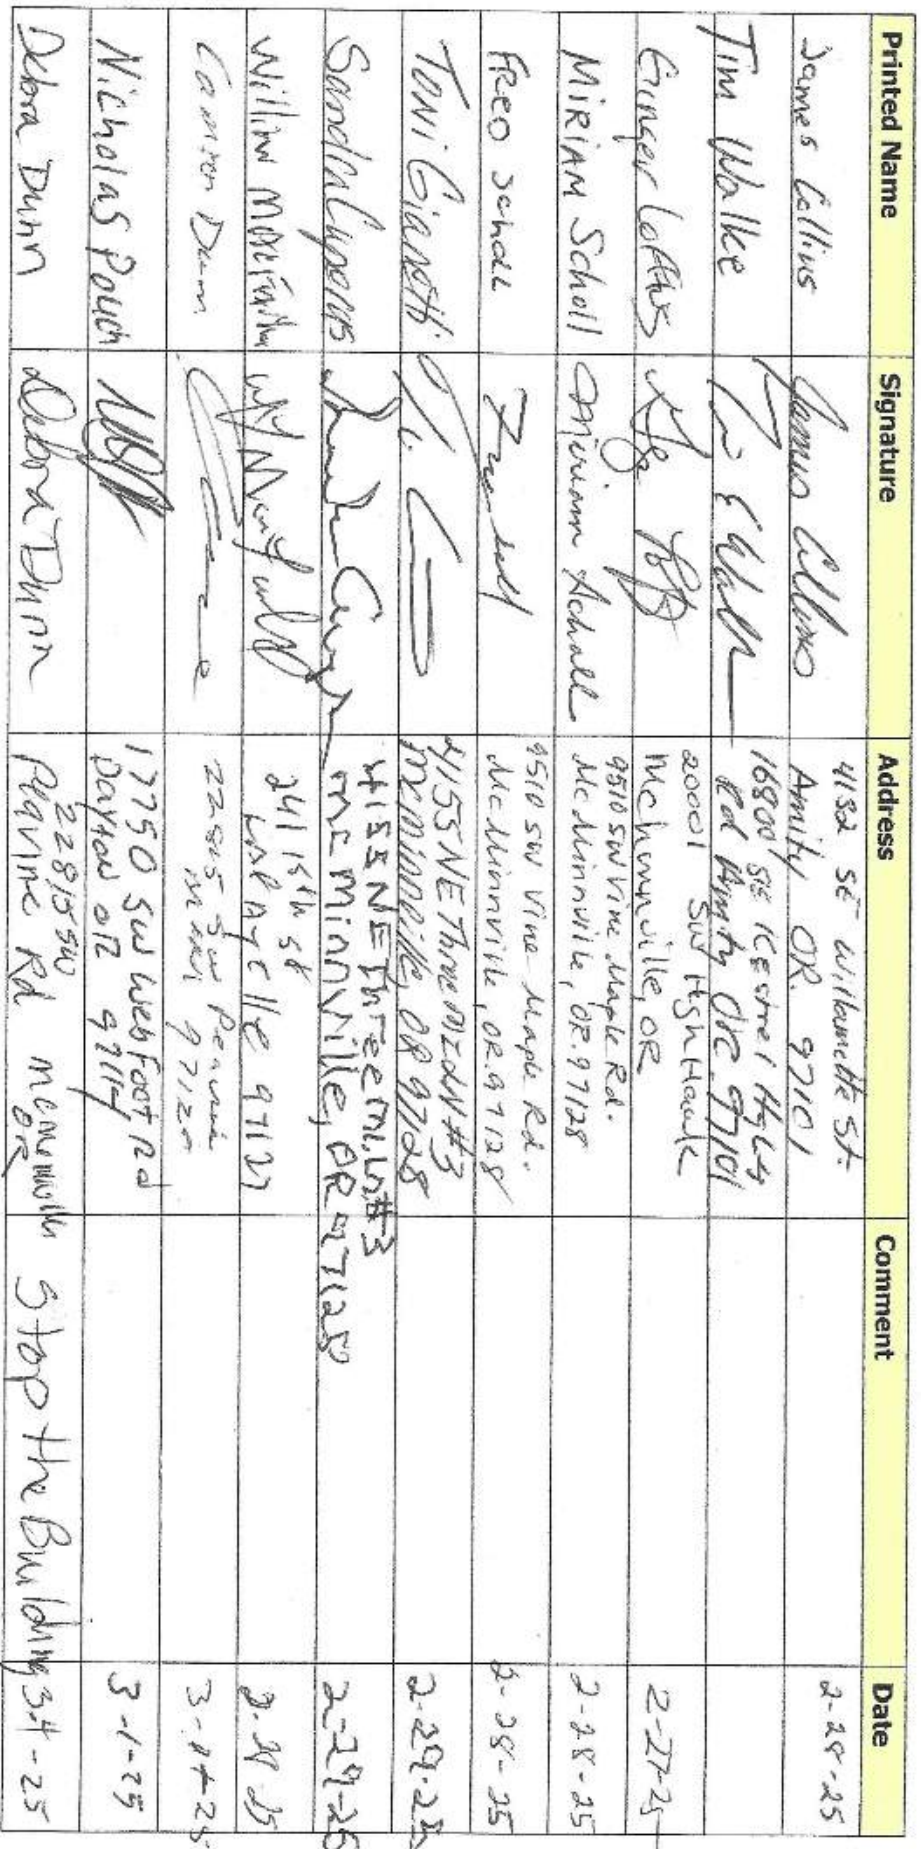 Printed Name Signature Address Comment Date
James Collins James Collins 4182 SE Willamette St.
Amity OR. 97101 2-28-25
Tim Walke 16800 SE Kestrel
Rd Amity ORE 97101
Ginger 20001 SW Highhawk
McMinnville, OR 2-27-25
Miriam Scholl Miriam Scholl 9510 SW Vine Maple Rd.
McMinnville, OR. 97128 2-28-25
FRED Scholl 9510 SW Vine Maple Rd.
McMinnville, OR. 97128 2-28-25
Toni 4155 NE Three #3
McMinnville, OR 97128 2-29-25
Sandra 4155 NE Three mi. Ln #3
McMinnville, OR 97128 2-29-25
William 241 15th St
Lafayette 97127
Dunn SW
97128 3-1-25
Nicholas Pouch 17750 SW Webfoot Rd
Dayton OR 97114 3-1-25
Debra Dunn Debra Dunn 22815 SW
Peavine Rd OR Stop the Building